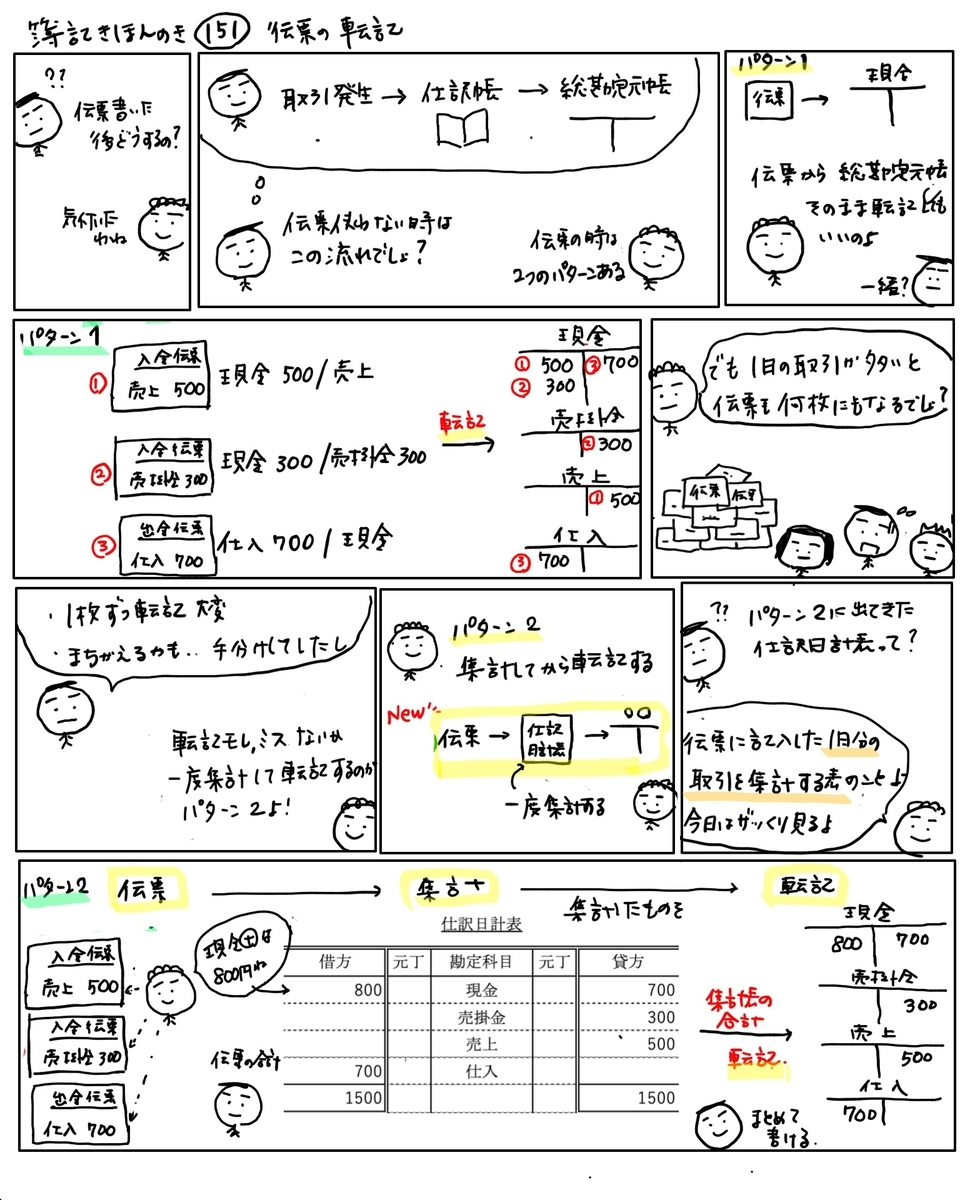 簿記きほんのき 151 伝票の転記
??
伝票書いた
後どうするの?
気付いた
わね
取引発生 → 仕訳帳 → 総勘定元帳
伝票使わない時は
この流れでしょ?
伝票の時は
2つのパターンある
パターン1
伝票 → 現金
伝票から 総勘定元帳
そのまま転記しても
いいのよ
一緒?
パターン1
① 入金伝票
売上 500
現金 500/売上
② 入金伝票
売掛金 300
現金 300/売掛金 300
③ 出金伝票
仕入 700
仕入 700/現金
転記
現金
① 500 ③ 700
② 300
売掛金
② 300
売上
① 500
仕入
③ 700
でも 1日の取引が多いと
伝票も 何枚にもなるでしょ?
伝票 伝票
・1枚ずつ転記 大変
・まちがえるかも.. 手分けしてしたし
転記モレ,ミス ないか
一度集計して転記するのが
パターン2よ!
パターン2
集計してから転記する
New
伝票 → 仕訳日計表 → ○○
一度集計する
??
パターン2に出てきた
仕訳日計表って?
伝票に記入した1日分の
取引を集計する表のことよ
今日はざっくり見るよ
パターン2 伝票 → 集計 → 転記
集計したものを
入金伝票
売上 500
入金伝票
売掛金 300
出金伝票
仕入 700
現金㊏は
800円ね
伝票の合計
仕訳日計表
借方 元丁 勘定科目 元丁 貸方
800 現金 700
売掛金 300
売上 500
700 仕入
1500 1500
集計帳の
合計
転記.
現金
800 700
売掛金
300
売上
500
仕入
700
まとめて
書ける.